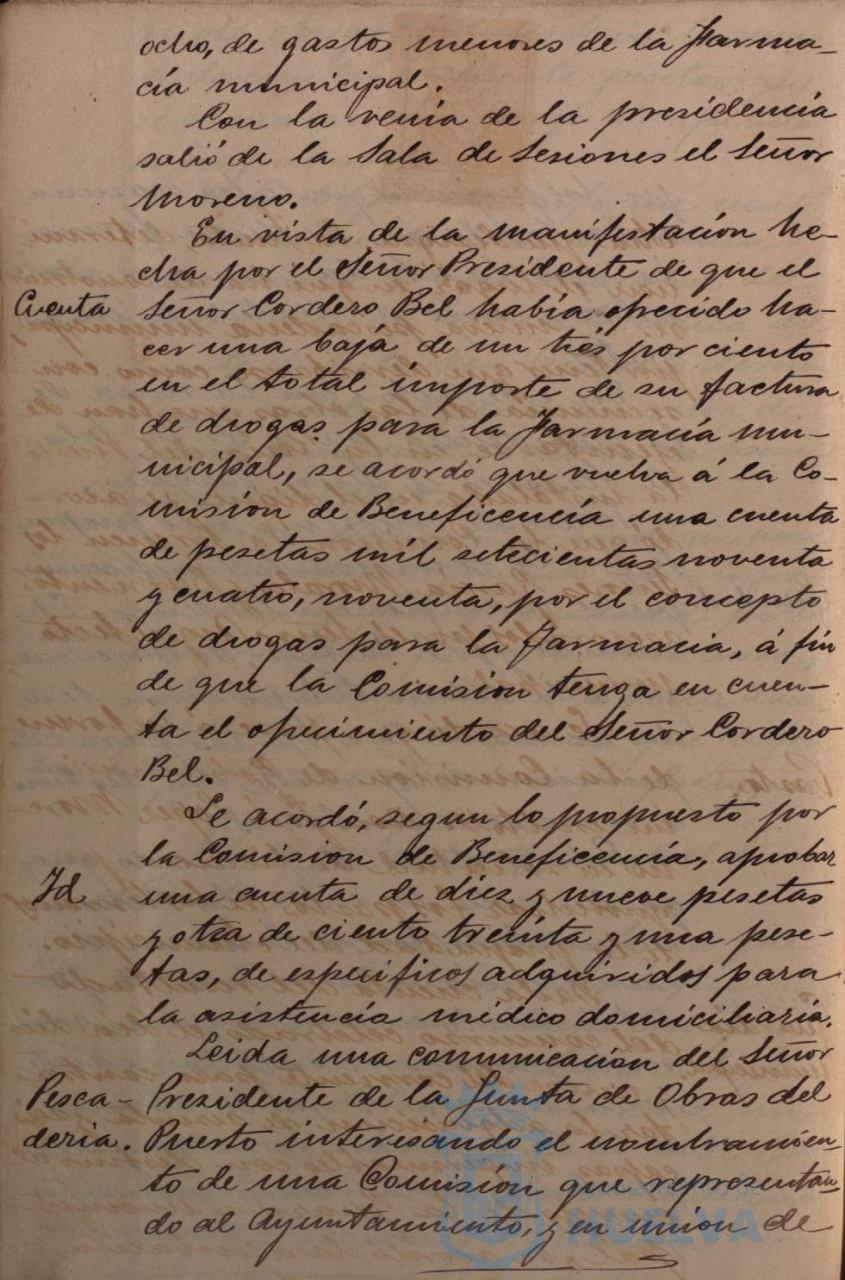 ocho, de gastos menores de la Farma-
cía municipal.
Con la venia de la presidencia
salió de la Sala de Sesiones el Señor
Moreno.
En vista de la manifestación he-
cha por el Señor Presidente de que el
Cuenta Señor Cordero Bel había ofrecido ha-
cer una baja de un tres por ciento
en el total importe de su factura
de drogas para la Farmacia mu-
nicipal, se acordó que vuelva á la Co-
misión de Beneficencia una cuenta
de pesetas mil setecientas noventa
y cuatro, noventa, por el concepto
de drogas para la Farmacia, á fin
de que la Comision tenga en cuen-
ta el ofrecimiento del Señor Cordero
Bel.
Se acordó, segun lo propuesto por
la Comision de Beneficencia, aprobar
Id una cuenta de diez y nueve pesetas
y otra de ciento treinta y una pese-
tas, de especificos adquiridos para
la asistencia médico domiciliaria.
Leida una comunicacion del Señor
Pesca- Presidente de la Junta de Obras del
deria. Puerto interesando el nombramien-
to de una Comisión que representan-
do al Ayuntamiento, y en union de
HUELVA